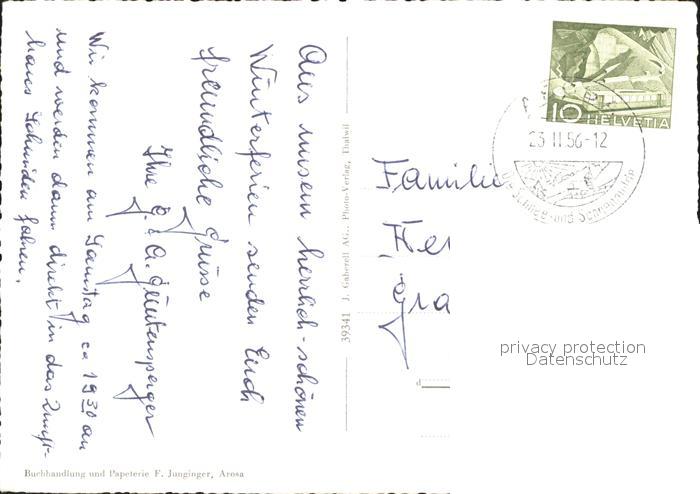 Aus unsern herrlich-schönen
Winterferien senden Euch
freundliche Grüsse
Ihre
Wir kommen am Samstag ca 19 30 an
und werden dann direkt in das Zunft-
haus fahren.
39341 J. Gaberell AG., Photo-Verlag, Thalwil
Familie
10 HELVETIA
23 II 56-12
privacy protection
Datenschutz
Buchhandlung und Papeterie F. Junginger, Arosa